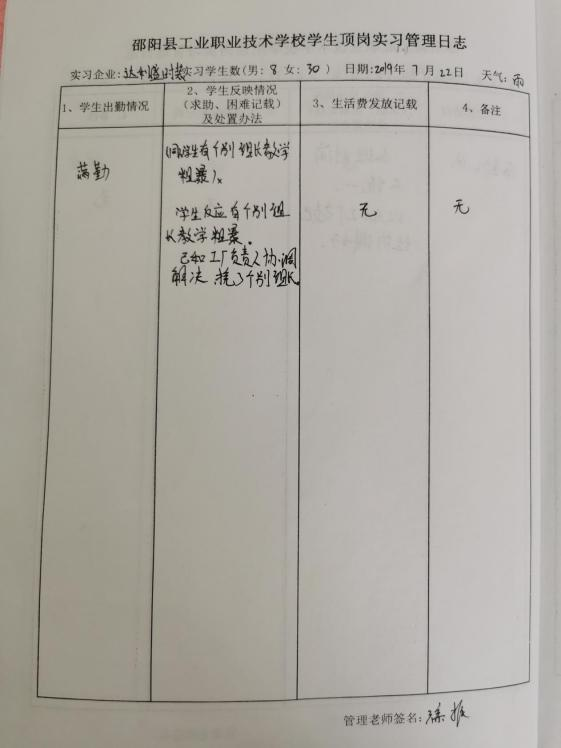 邵阳县工业职业技术学校学生顶岗实习管理日志
实习企业:达利盛时装 实习学生数(男: 8 女: 30 ) 日期:2019年 7 月 22日 天气: 雨
1、学生出勤情况
2、学生反映情况
(求助、困难记载)
及处置办法
3、生活费发放记载
4、备注
满勤
粗暴)。
学生反应有个别组
长教学粗暴。
已和工厂负责人协调
解决,换了个别组长。
无
无
管理老师签名: